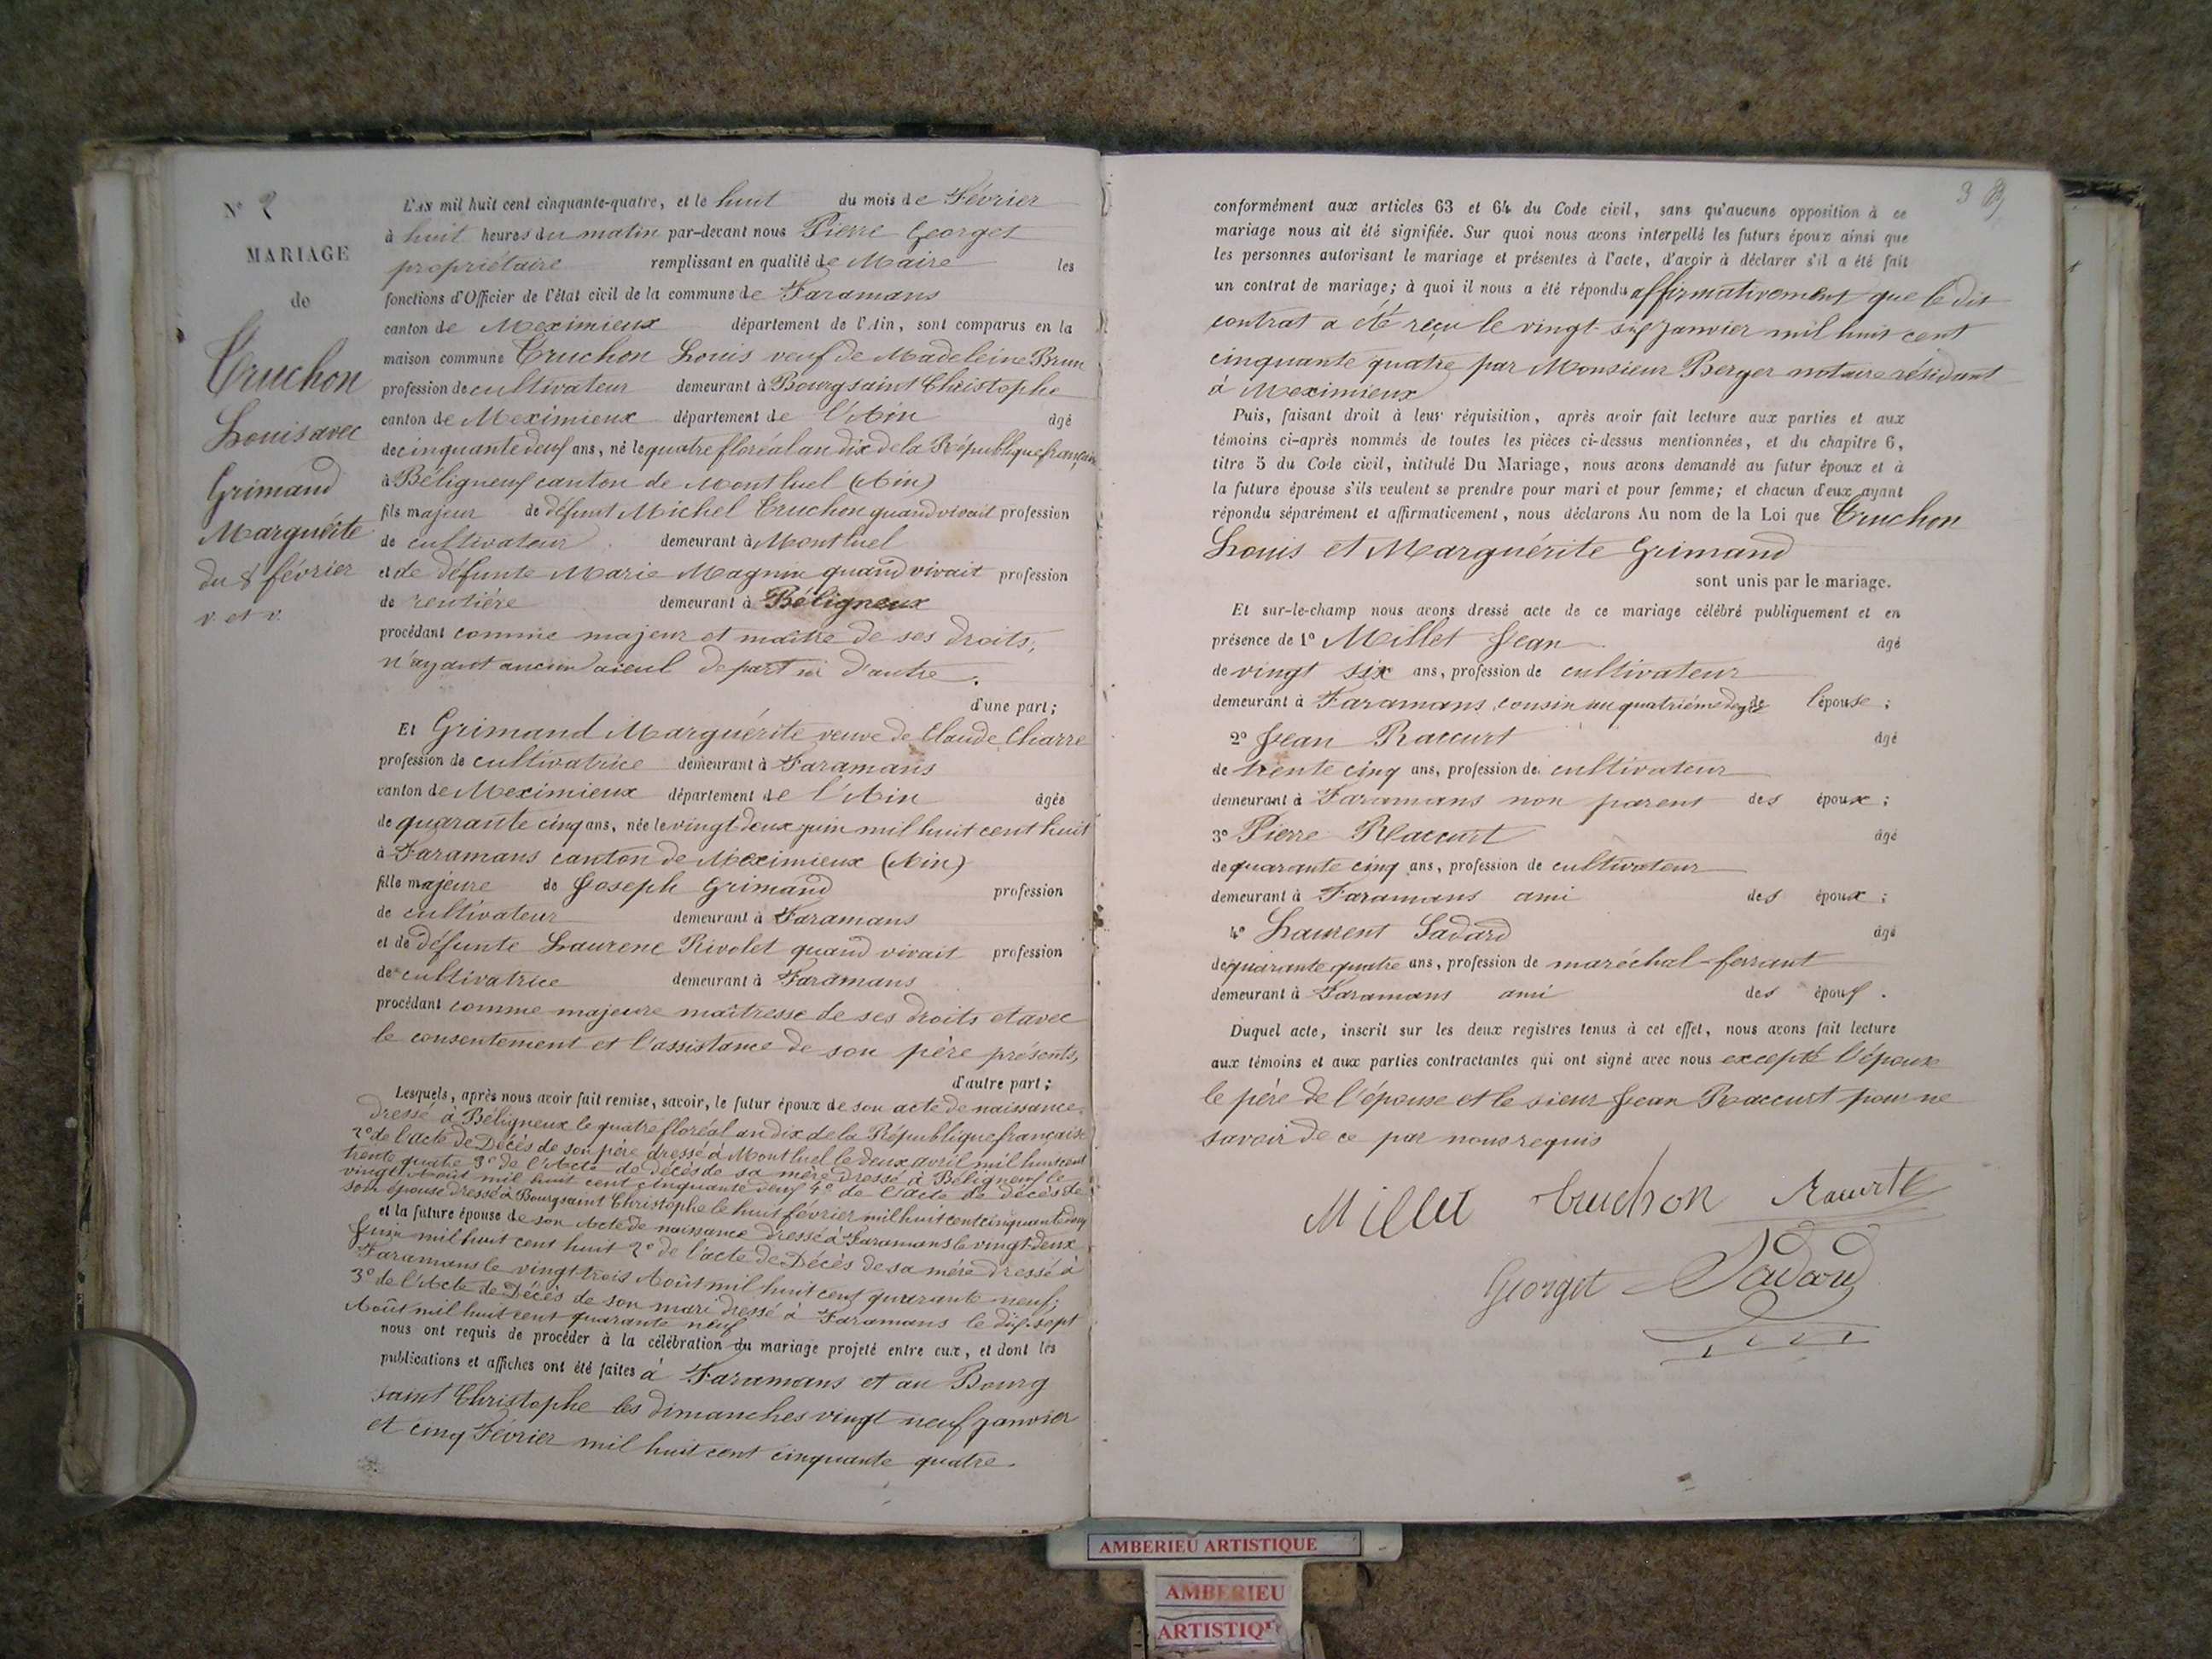 N° 2
MARIAGE
de
Truchon
Louis avec
Grimand
Marguérite
du 8 février
v. et v.
L'AN mil huit cent cinquante-quatre, et le huit du mois de Février
à huit heures du matin par-devant nous Pierre Georget
propriétaire remplissant en qualité de Maire les
fonctions d'Officier de l'état civil de la commune de Faramans
canton de Meximieux département de l'Ain, sont comparus en la
maison commune Truchon Louis veuf de Madeleine Brun
profession de cultivateur demeurant à Bourg saint Christophe
canton de Meximieux département de l'Ain âgé
de cinquante deux ans, né le quatre floréal an dix de la République française
à Béligneux canton de Montluel (Ain)
fils majeur de défunt Michel Truchon quand vivait profession
de cultivateur demeurant à Montluel
et de défunte Marie Magnin quand vivait profession
de rentière demeurant à Béligneux
procédant comme majeur et maître de ses droits,
n'ayant aucun aieul de part ni d'autre.
d'une part;
Et Grimand Marguérite veuve de Claude Charre
profession de cultivatrice demeurant à Faramans
canton de Meximieux département de l'Ain âgée
de quarante cinq ans, née le vingt deux juin mil huit cent huit
à Faramans canton de Meximieux (Ain)
fille majeure de Joseph Grimand profession
de cultivateur demeurant à Faramans
et de défunte Laurene Rivolet quand vivait profession
de cultivatrice demeurant à Faramans
procédant comme majeure maîtresse de ses droits et avec
le consentement et l'assistance de son père présents,
d'autre part;
Lesquels, après nous avoir fait remise, savoir, le futur époux de son acte de naissance
dressé à Béligneux le quatre floréal an dix de la République française
2° de l'acte de Décès de son père dressé à Montluel le deux avril mil huit cent
trente quatre 3° de l'Acte de décès de sa mère dressé à Béligneux le
vingt Août mil huit cent cinquante deux 4° de l'acte de décès de
son épouse dressé à Bourg saint Christophe le huit février mil huit cent cinquante
et la future épouse de son Acte de naissance dressé à Faramans le vingt-deux
Juin mil huit cent huit 2° de l'acte de Décès de sa mère dressé à
Faramans le vingt-trois Août mil huit cent quarante neuf;
3° de l'Acte de Décès de son mari dressé à Faramans le dix-sept
Août mil huit cent quarante neuf
nous ont requis de procéder à la célébration du mariage projeté entre eux, et dont les
publications et affiches ont été faites à Faramans et au Bourg
saint Christophe les dimanches vingt neuf janvier
et cinq Février mil huit cent cinquante quatre.
3
conformément aux articles 63 et 64 du Code civil, sans qu'aucune opposition à ce
mariage nous ait été signifiée. Sur quoi nous avons interpellé les futurs époux ainsi que
les personnes autorisant le mariage et présentes à l'acte, d'avoir à déclarer s'il a été fait
un contrat de mariage; à quoi il nous a été répondu affirmativement que le dit
contrat a été reçu le vingt six Janvier mil huit cent
cinquante quatre par Monsieur Berger notaire résidant
à Meximieux
Puis, faisant droit à leur réquisition, après avoir fait lecture aux parties et aux
témoins ci-après nommés de toutes les pièces ci-dessus mentionnées, et du chapitre 6,
titre 5 du Code civil, intitulé Du Mariage, nous avons demandé au futur époux et à
la future épouse s'ils veulent se prendre pour mari et pour femme; et chacun d'eux ayant
répondu séparément et affirmativement, nous déclarons Au nom de la Loi que Truchon
Louis et Marguérite Grimand
sont unis par le mariage.
Et sur-le-champ nous avons dressé acte de ce mariage célébré publiquement et en
présence de 1° Millet Jean âgé
de vingt six ans, profession de cultivateur
demeurant à Faramans, cousin au quatrième degré de l'épouse;
2° Jean Raccurt âgé
de trente cinq ans, profession de cultivateur
demeurant à Faramans non parent des époux;
3° Pierre Raccurt âgé
de quarante cinq ans, profession de cultivateur
demeurant à Faramans ami des époux;
4° Laurent Sadard âgé
de quarante quatre ans, profession de maréchal-ferrant
demeurant à Faramans ami des époux.
Duquel acte, inscrit sur les deux registres tenus à cet effet, nous avons fait lecture
aux témoins et aux parties contractantes qui ont signé avec nous excepté l'épouse
le père de l'épouse et le sieur Jean Raccurt pour ne
savoir de ce par nous requis
Millet Truchon Raccurt
Georget Sadard
AMBERIEU ARTISTIQUE
AMBERIEU
ARTISTIQUE